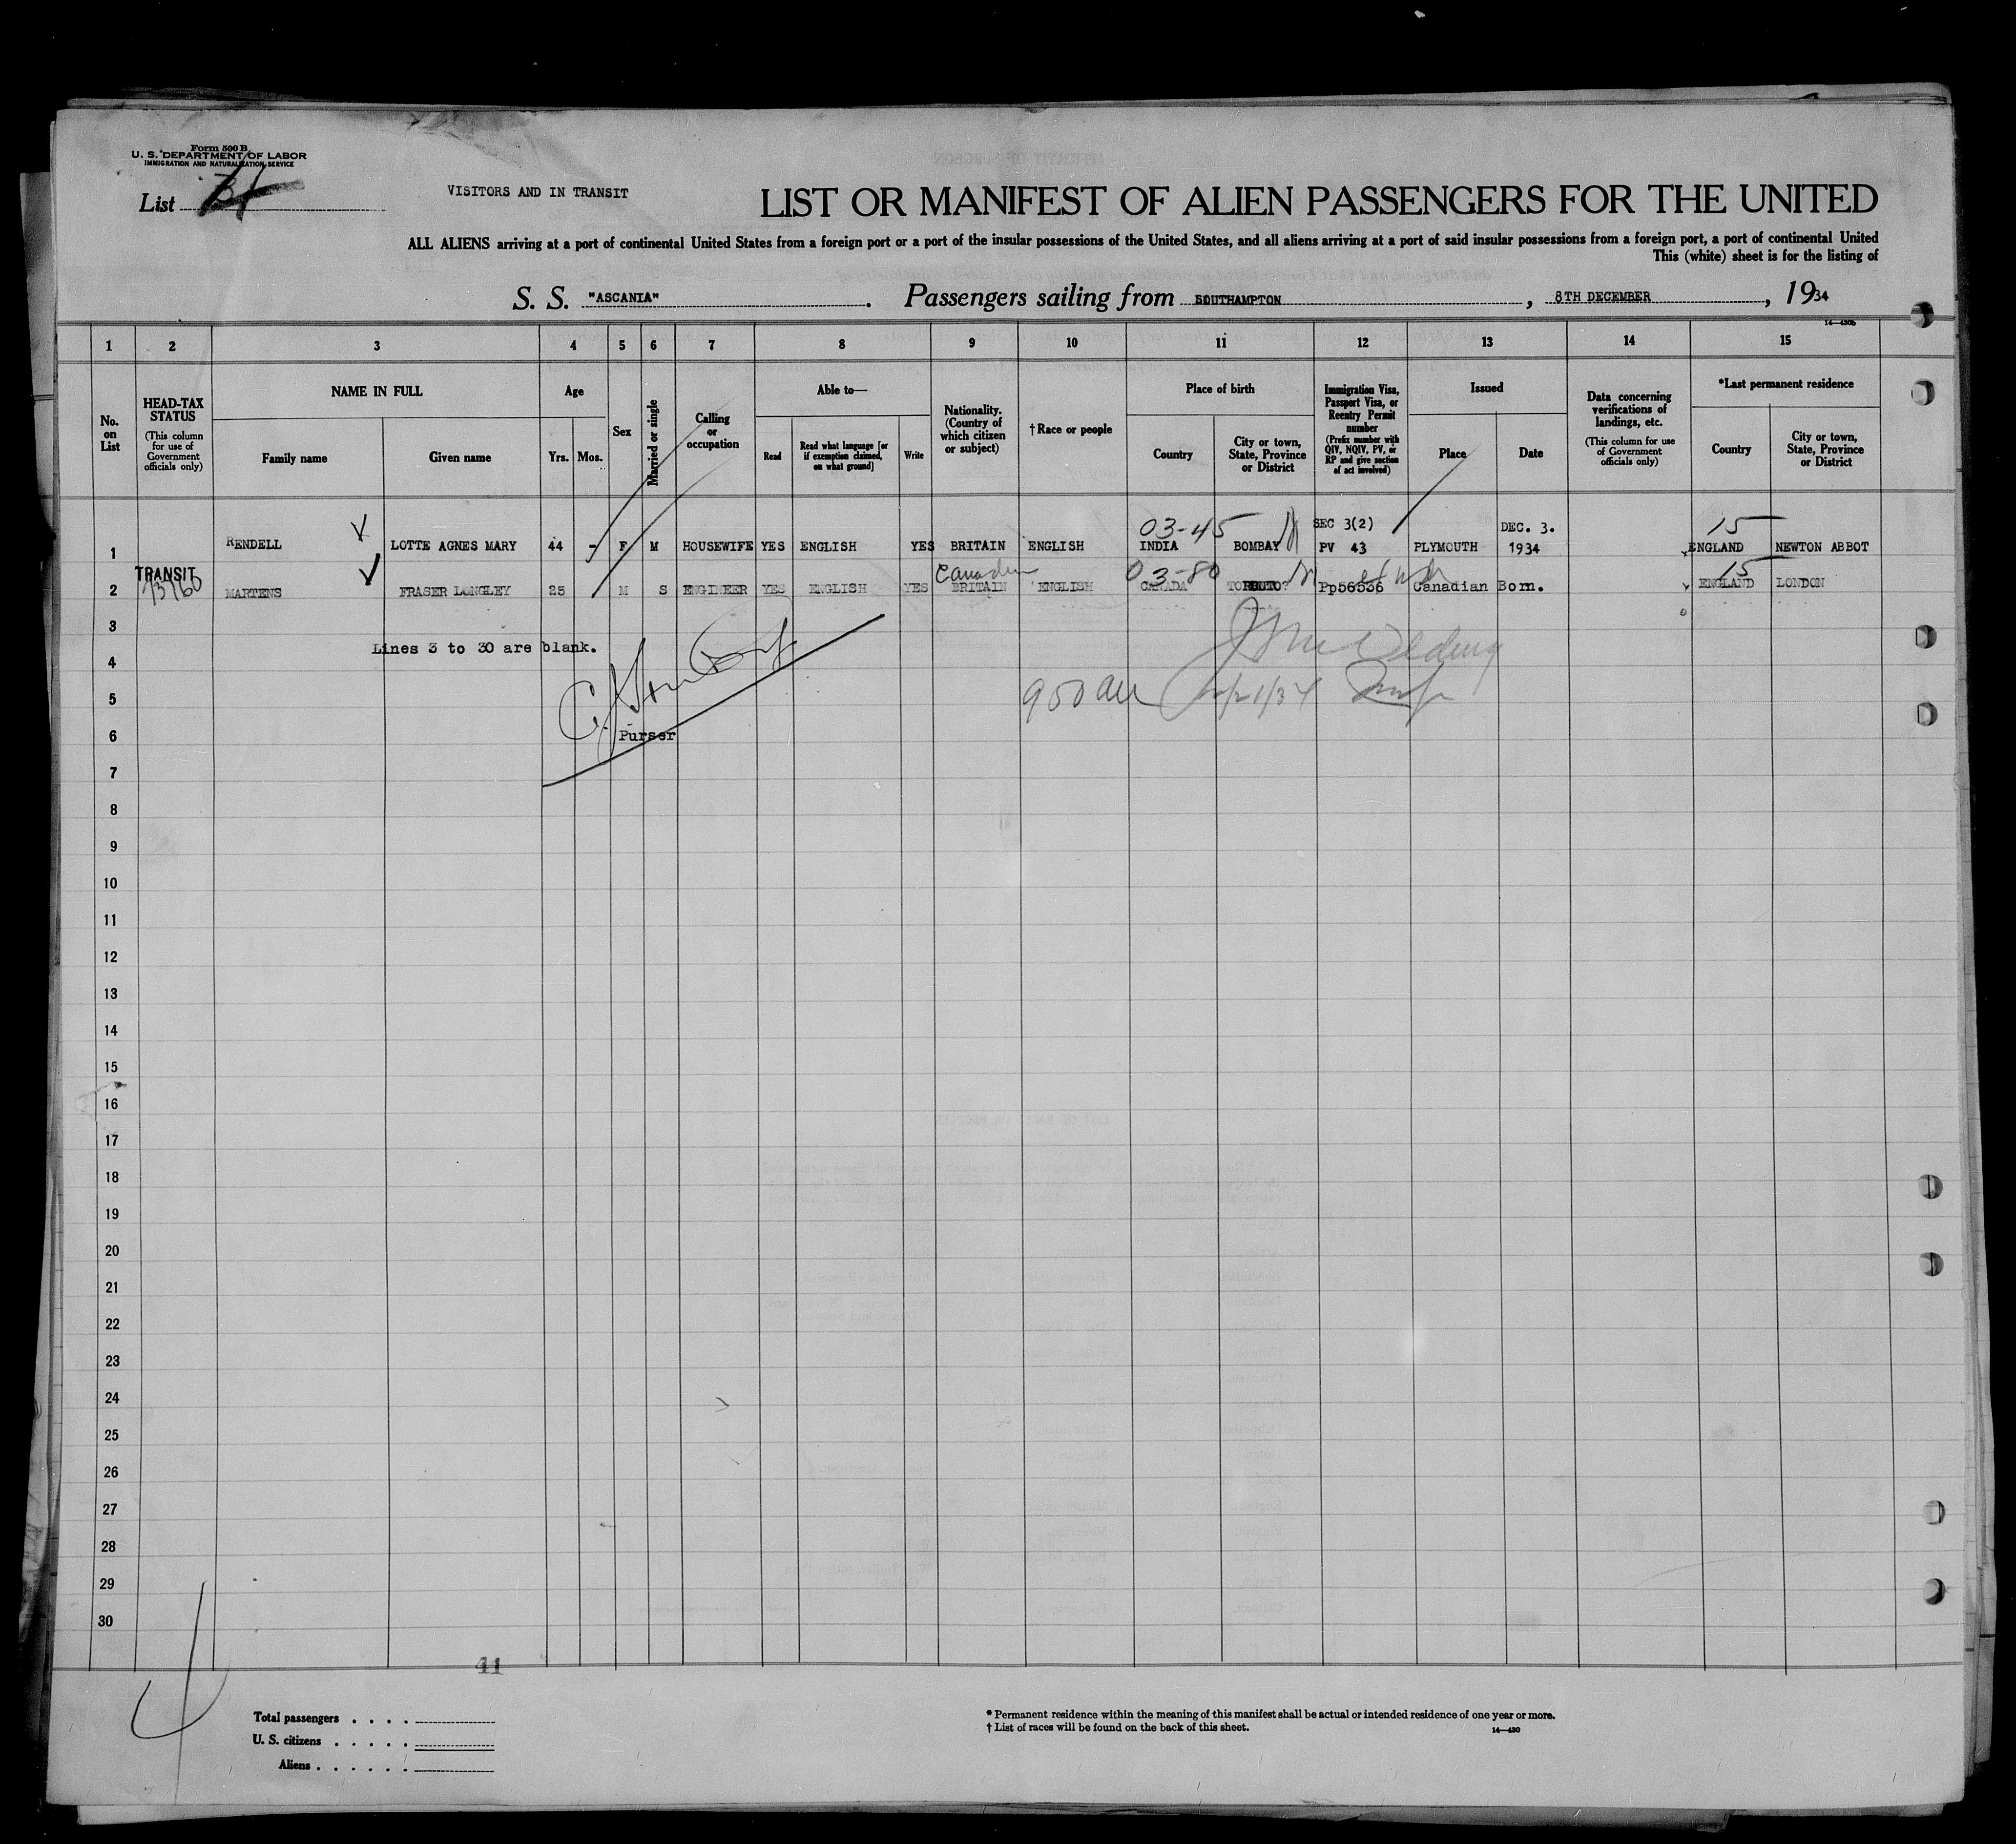 Form 500 B
U. S. DEPARTMENT OF LABOR
IMMIGRATION AND NATURALIZATION SERVICE
List
VISITORS AND IN TRANSIT
LIST OR MANIFEST OF ALIEN PASSENGERS FOR THE UNITED
ALL ALIENS arriving at a port of continental United States from a foreign port or a port of the insular possessions of the United States, and all aliens arriving at a port of said insular possessions from a foreign port, a port of continental United
This (white) sheet is for the listing of
S. S. "ASCANIA". Passengers sailing from SOUTHAMPTON, 8TH DECEMBER, 1934
14—430b
1 2 3 4 5 6 7 8 9 10 11 12 13 14 15
No. on List
HEAD-TAX STATUS
(This column for use of Government officials only)
NAME IN FULL
Family name
Given name
Age
Yrs. Mos.
Sex
Married or single
Calling or occupation
Able to—
Read
Read what language [or if exemption claimed, on what ground]
Write
Nationality. (Country of which citizen or subject)
†Race or people
Place of birth
Country
City or town, State, Province or District
Immigration Visa, Passport Visa, or Reentry Permit number
(Prefix number with QIV, NQIV, PV, or RP and give section of act involved)
Issued
Place
Date
Data concerning verifications of landings, etc.
(This column for use of Government officials only)
*Last permanent residence
Country
City or town, State, Province or District
03-45 SEC 3(2) DEC. 3. 15
1 RENDELL LOTTE AGNES MARY 44 - F M HOUSEWIFE YES ENGLISH YES BRITAIN ENGLISH INDIA BOMBAY PV 43 PLYMOUTH 1934 ENGLAND NEWTON ABBOT
TRANSIT Canadian 03-80 15
2 MARTENS FRASER LONGLEY 25 M S ENGINEER YES ENGLISH YES BRITAIN ENGLISH CANADA Pp56536 Canadian Born. ENGLAND LONDON
3
Lines 3 to 30 are blank.
4
5
6 Purser
7
8
9
10
11
12
13
14
15
16
17
18
19
20
21
22
23
24
25
26
27
28
29
30
41
Total passengers
U. S. citizens
Aliens
* Permanent residence within the meaning of this manifest shall be actual or intended residence of one year or more.
† List of races will be found on the back of this sheet.
14—430